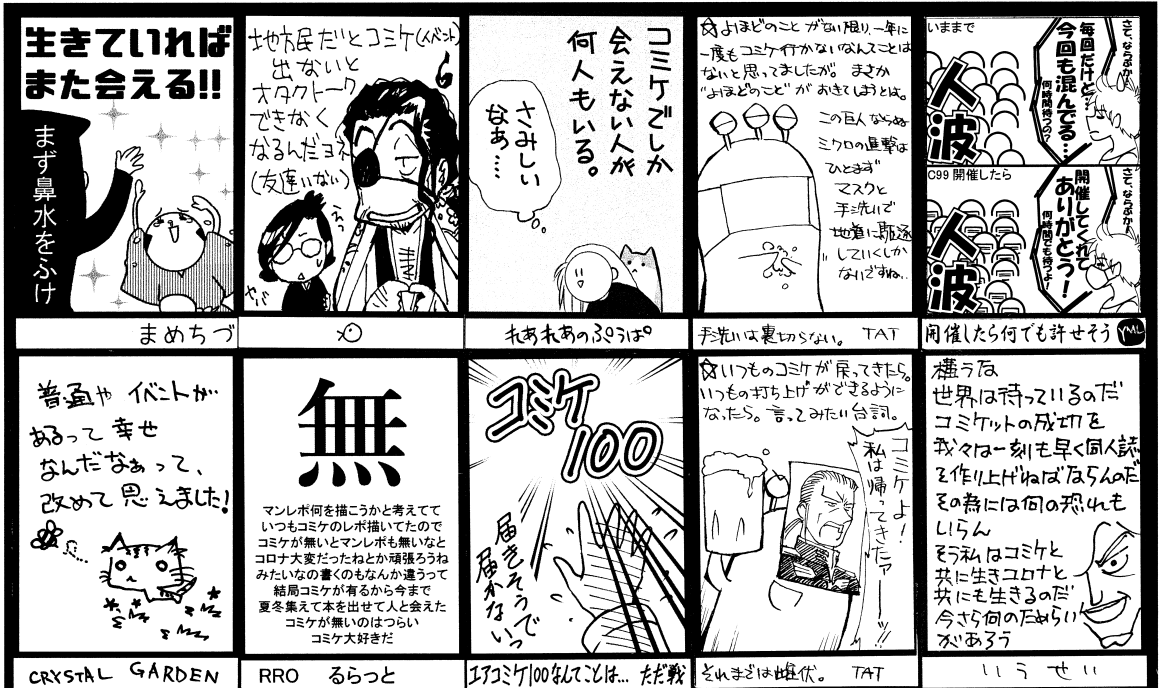 生きていれば
また会える!!
まず鼻水をふけ
まめちづ
地方民だとコミケ(イベント)
出ないと
オタクトーク
できなく
なるんだヨネ
(友達いない)
コミケでしか
会えない人が
何人もいる。
さみしい
なぁ…
れあれあのぷぅはぱ
☆よほどのことがない限り、一年に
一度もコミケ行かないなんてことは
ないと思ってましたが。まさか
"よほどのこと"がおきてしまうとは。
この巨人ならぬ
ミクロの進撃は
ひとまず
マスクと
手洗いで
地道に駆逐
していくしか
ないですね…
手洗いは裏切らない。 TAT
いままで
さて、ならぶか!
毎回だけど…
今回も混んでる…
何時間待つの?
人波
C99 開催したら
さて、ならぶか!
開催してくれて
ありがとう!
何時間でも待つよ!
人波
開催したら何でも許せそう YML
普通や イベントが
あるって幸せ
なんだなぁって、
改めて思えました!
CRYSTAL GARDEN
無
マンレポ何を描こうかと考えてて
いつもコミケのレポ描いてたので
コミケが無いとマンレポも無いなと
コロナ大変だったねとか頑張ろうね
みたいなの書くのもなんか違うって
結局コミケが有るから今まで
夏冬集えて本を出せて人と会えた
コミケが無いのはつらい
コミケ大好きだ
RRO るらっと
コミケ
100
届きそうで
届かないっ
エアコミケ100なんてことは… ただ戦
☆いつものコミケが戻ってきたら。
いつもの打ち上げができるように
なったら。言ってみたい台詞。
コミケよ!
私は帰ってきたァーーッ!!
それまでは雌伏。 TAT
構うな
世界は待っているのだ
コミケットの成功を
我々は一刻も早く同人誌
を作り上げねばならんのだ
その為には何の恐れも
いらん
そう私はコミケと
共に生きコロナと
共にも生きるのだ
今さら何のためらい
があろう
いうせい